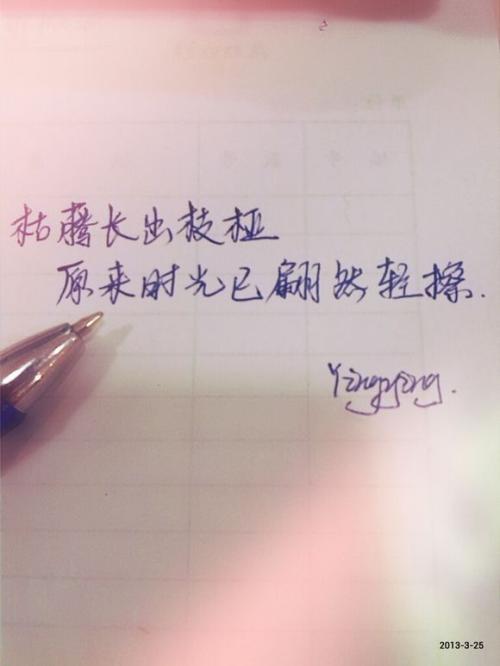 枯藤长出枝桠
原来时光已翩然轻擦.
Yingying.
2013-3-25